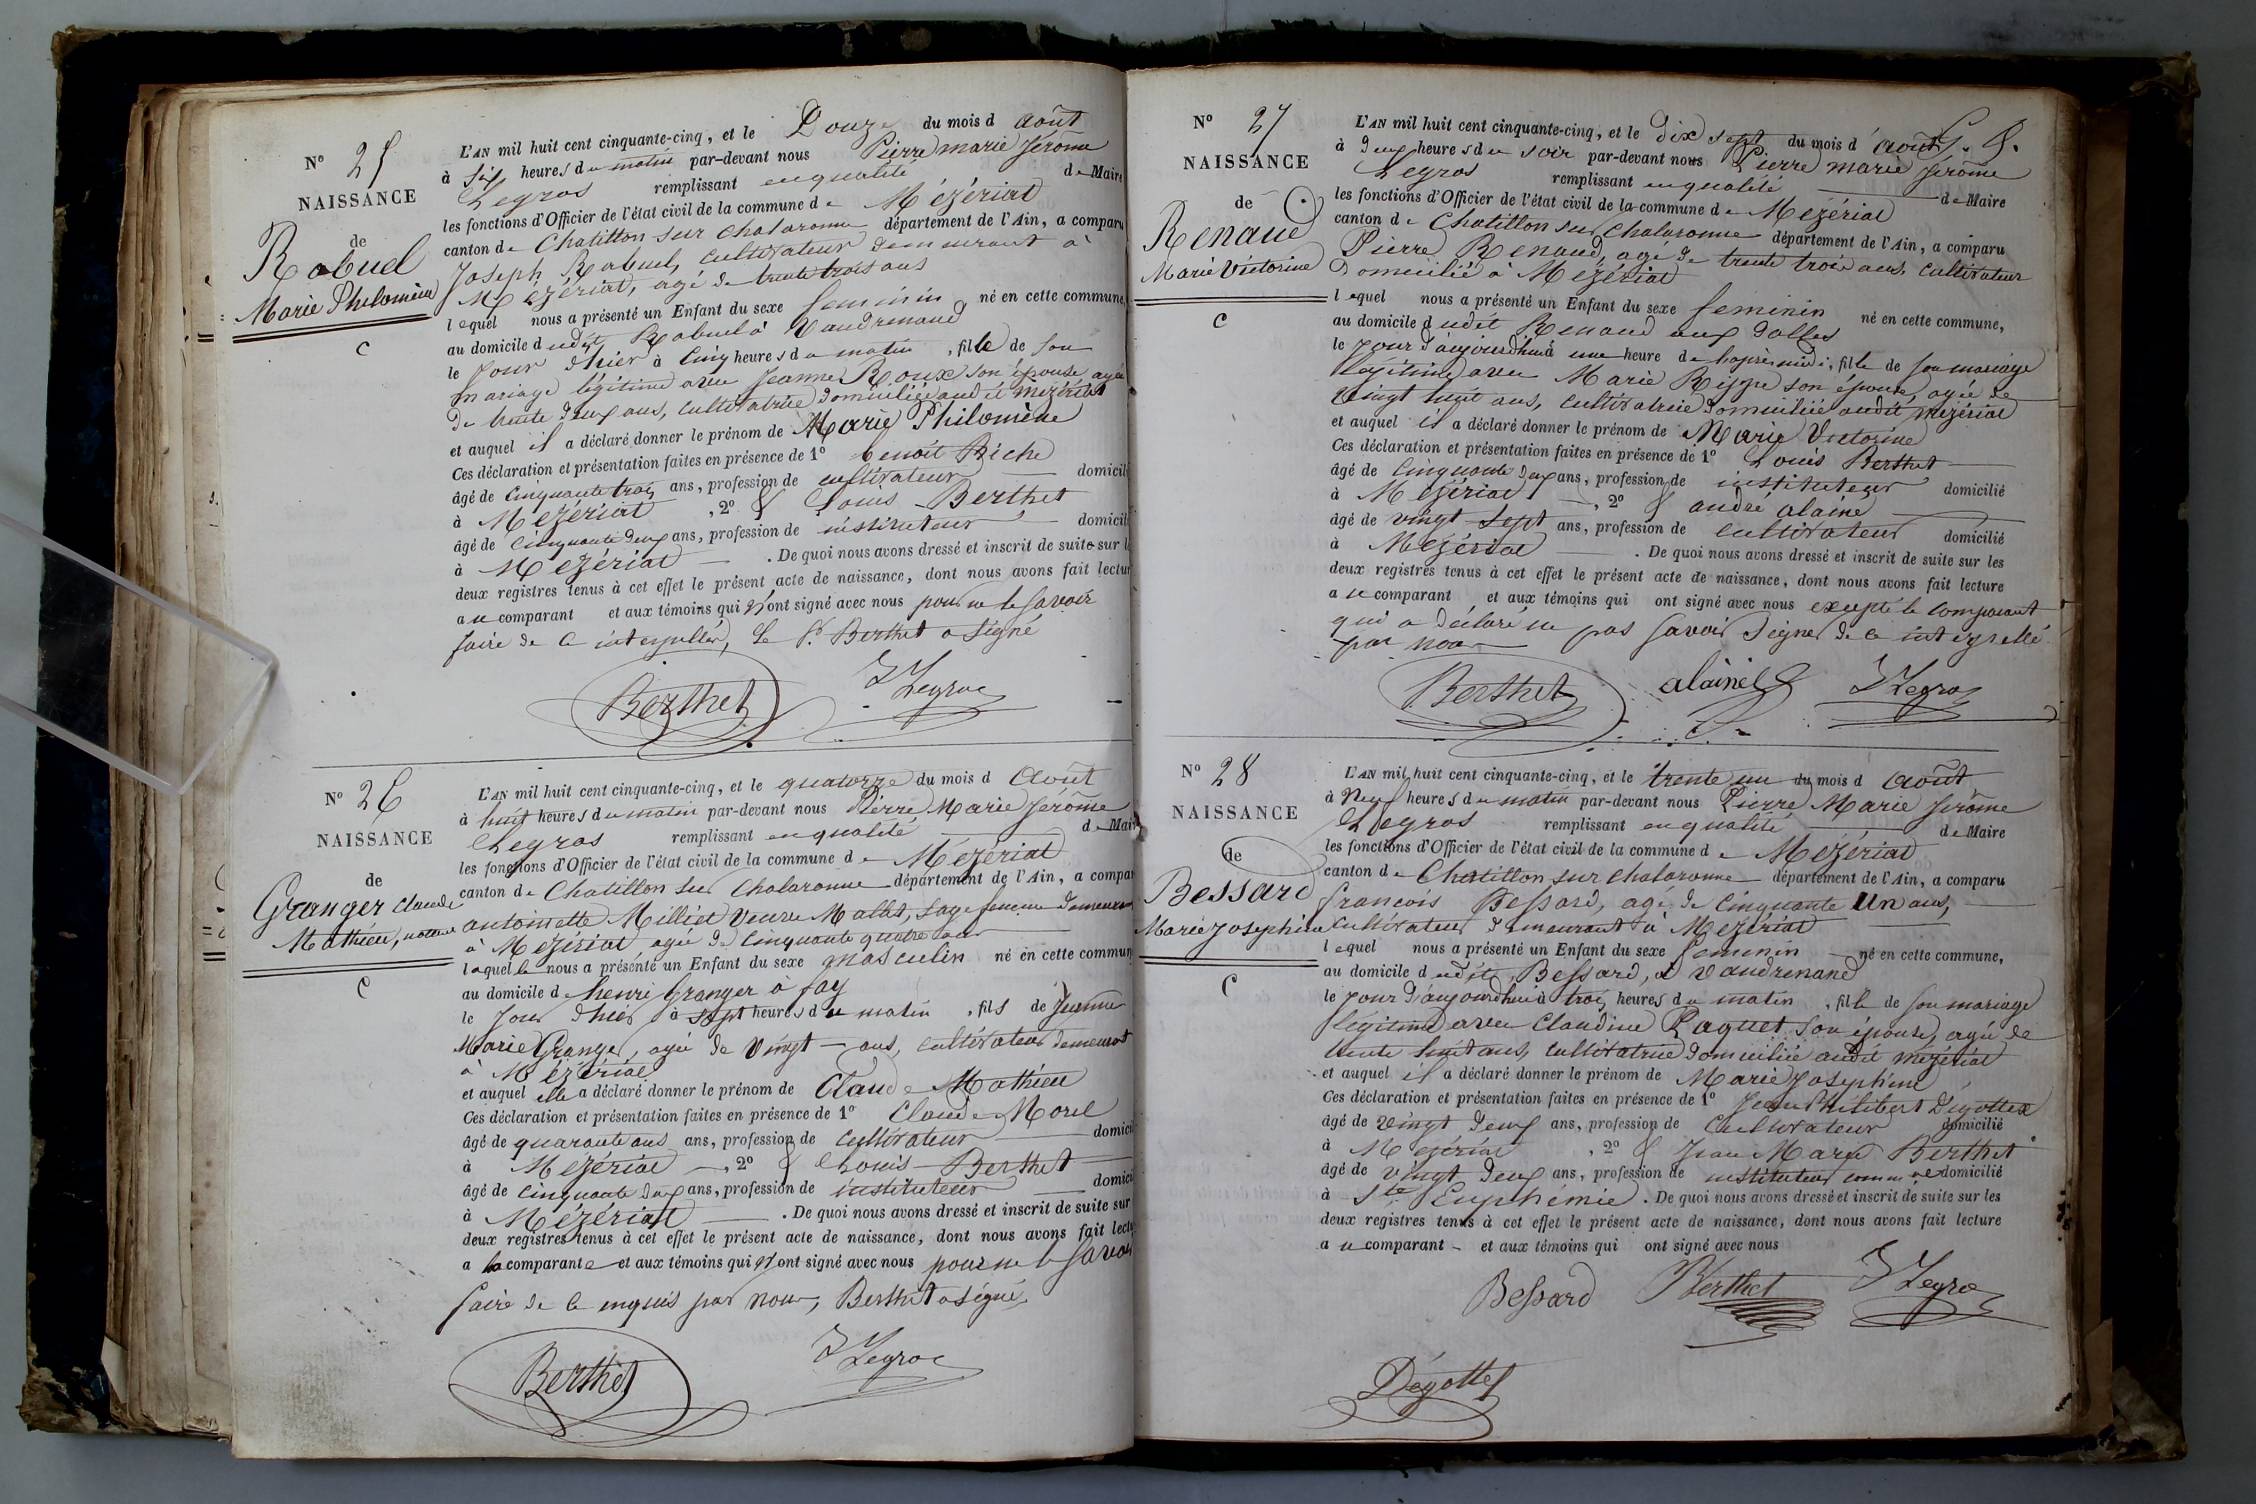 N° 25
NAISSANCE
de
Rabuel
Marie Philomène
C
L'AN mil huit cent cinquante-cinq, et le Douze du mois d août
à six heures du matin par-devant nous Pierre marie Jérôme
Legros remplissant en qualité de Maire
les fonctions d'Officier de l'état civil de la commune de Mézériat
canton de Chatillon sur chalaronne département de l'Ain, a comparu
Joseph Rabuel, cultivateur demeurant à
Mézériat, agé de trente trois ans
lequel nous a présenté un Enfant du sexe feminin né en cette commune,
au domicile dudit Rabuel à Vaudrenand
le jour d'hier à cinq heures du matin, fille de son
mariage légitime avec Jeanne Roux son épouse agée
de trente deux ans, cultivatrice domiciliée audit mézériat
et auquel il a déclaré donner le prénom de Marie Philomène
Ces déclaration et présentation faites en présence de 1° benoit Biche
âgé de cinquante trois ans, profession de cultivateur domicili
à Mézériat, 2° & Louis Berthet
âgé de cinquante deux ans, profession de instituteur domicili
à Mézériat. De quoi nous avons dressé et inscrit de suite sur le
deux registres tenus à cet effet le présent acte de naissance, dont nous avons fait lectur
au comparant et aux témoins qui n'ont signé avec nous pour ne le savoir
faire de ce interpellés, le Sr Berthet a signé
Berthet JLegros
N° 26
NAISSANCE
de
Granger Claude
Mathieu, naturel
C
L'AN mil huit cent cinquante-cinq, et le quatorze du mois d Août
à huit heures du matin par-devant nous Pierre Marie Jérôme
Legros remplissant en qualité de Mair
les fonctions d'Officier de l'état civil de la commune de Mézériat
canton de Chatillon sur Chalaronne département de l'Ain, a compar
antoinette Milliet veuve Mallet, sage femme demeurant
à Mézériat agée de cinquante quatre ans
laquelle nous a présenté un Enfant du sexe masculin né en cette commun
au domicile de henri granger à fay
le jour d'hier à sept heures du matin, fils de Jeanne
Marie Granger, agée de vingt ans, cultivateur demeurant
à Mézériat
et auquel elle a déclaré donner le prénom de Claude Mathieu
Ces déclaration et présentation faites en présence de 1° Claude Morel
âgé de quarante ans ans, profession de cultivateur domici
à Mézériat, 2° & Louis Berthet
âgé de cinquante deux ans, profession de instituteur domici
à Mézériat. De quoi nous avons dressé et inscrit de suite sur
deux registres tenus à cet effet le présent acte de naissance, dont nous avons fait lectu
a la comparante et aux témoins qui n'ont signé avec nous pour ne le savoir
faire de ce enquis par nous, Berthet a signé
Berthet JLegros
N° 27
NAISSANCE
de
Renaud
Marie Victorine
C
L'AN mil huit cent cinquante-cinq, et le dix sept du mois d'août
à deux heures du soir par-devant nous Pierre marie Jérôme
Legros remplissant en qualité de Maire
les fonctions d'Officier de l'état civil de la commune de Mézériat
canton de Chatillon sur Chalaronne département de l'Ain, a comparu
Pierre Renaud, agé de trente trois ans, cultivateur
Domicilié à Mézériat
lequel nous a présenté un Enfant du sexe feminin né en cette commune,
au domicile dudit Renaud aux dolles
le jour d'aujourd'hui à une heure de l'après midi, fille de son mariage
légitime avec Marie Rippe son épouse, agée de
vingt huit ans, cultivatrice domiciliée audit mézériat
et auquel il a déclaré donner le prénom de Marie Victorine
Ces déclaration et présentation faites en présence de 1° Louis Berthet
âgé de cinquante deux ans, profession de instituteur domicilié
à Mézériat, 2° & andré alainé
âgé de vingt sept ans, profession de cultivateur domicilié
à Mézériat. De quoi nous avons dressé et inscrit de suite sur les
deux registres tenus à cet effet le présent acte de naissance, dont nous avons fait lecture
au comparant et aux témoins qui ont signé avec nous excepté le comparant
qui a déclaré ne pas savoir signer de ce interpellé
par nous
Berthet alainé JLegros
N° 28
NAISSANCE
de
Bessard
Marie Josephine
C
L'AN mil huit cent cinquante-cinq, et le trente un du mois d août
à neuf heures du matin par-devant nous Pierre Marie Jérôme
Legros remplissant en qualité de Maire
les fonctions d'Officier de l'état civil de la commune de Mézériat
canton de Chatillon sur Chalaronne département de l'Ain, a comparu
françois Bessard, agé de cinquante un ans,
cultivateur demeurant à Mézériat
lequel nous a présenté un Enfant du sexe feminin né en cette commune,
au domicile dudit Bessard, à Vaudrenand
le jour d'aujourd'hui à trois heures du matin, fille de son mariage
légitime avec Claudine Paquet son épouse, agée de
trente huit ans, cultivatrice domiciliée audit mézériat
et auquel il a déclaré donner le prénom de Marie Josephine
Ces déclaration et présentation faites en présence de 1° Jean Philibert Dégottex
âgé de vingt deux ans, profession de Cultivateur domicilié
à Mézériat, 2° & Jean Marie Berthet
âgé de vingt deux ans, profession de instituteur comm al domicilié
à Ste Euphémie. De quoi nous avons dressé et inscrit de suite sur les
deux registres tenus à cet effet le présent acte de naissance, dont nous avons fait lecture
au comparant et aux témoins qui ont signé avec nous
Bessard Berthet JLegros
Dégottex